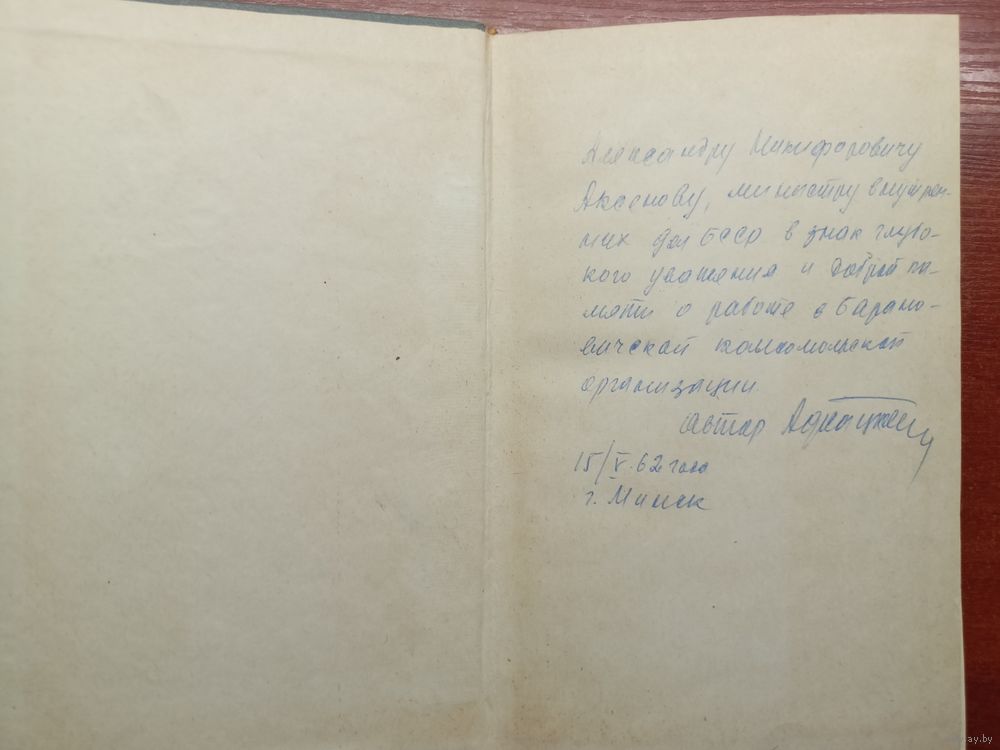 Александру Никифоровичу
Аксенову, министру внутрен-
них дел БССР в знак глубо-
кого уважения и доброй па-
мяти о работе в Барано-
вичской комсомольской
организации.
автор
15/V.62 года
г. Минск
ay.by